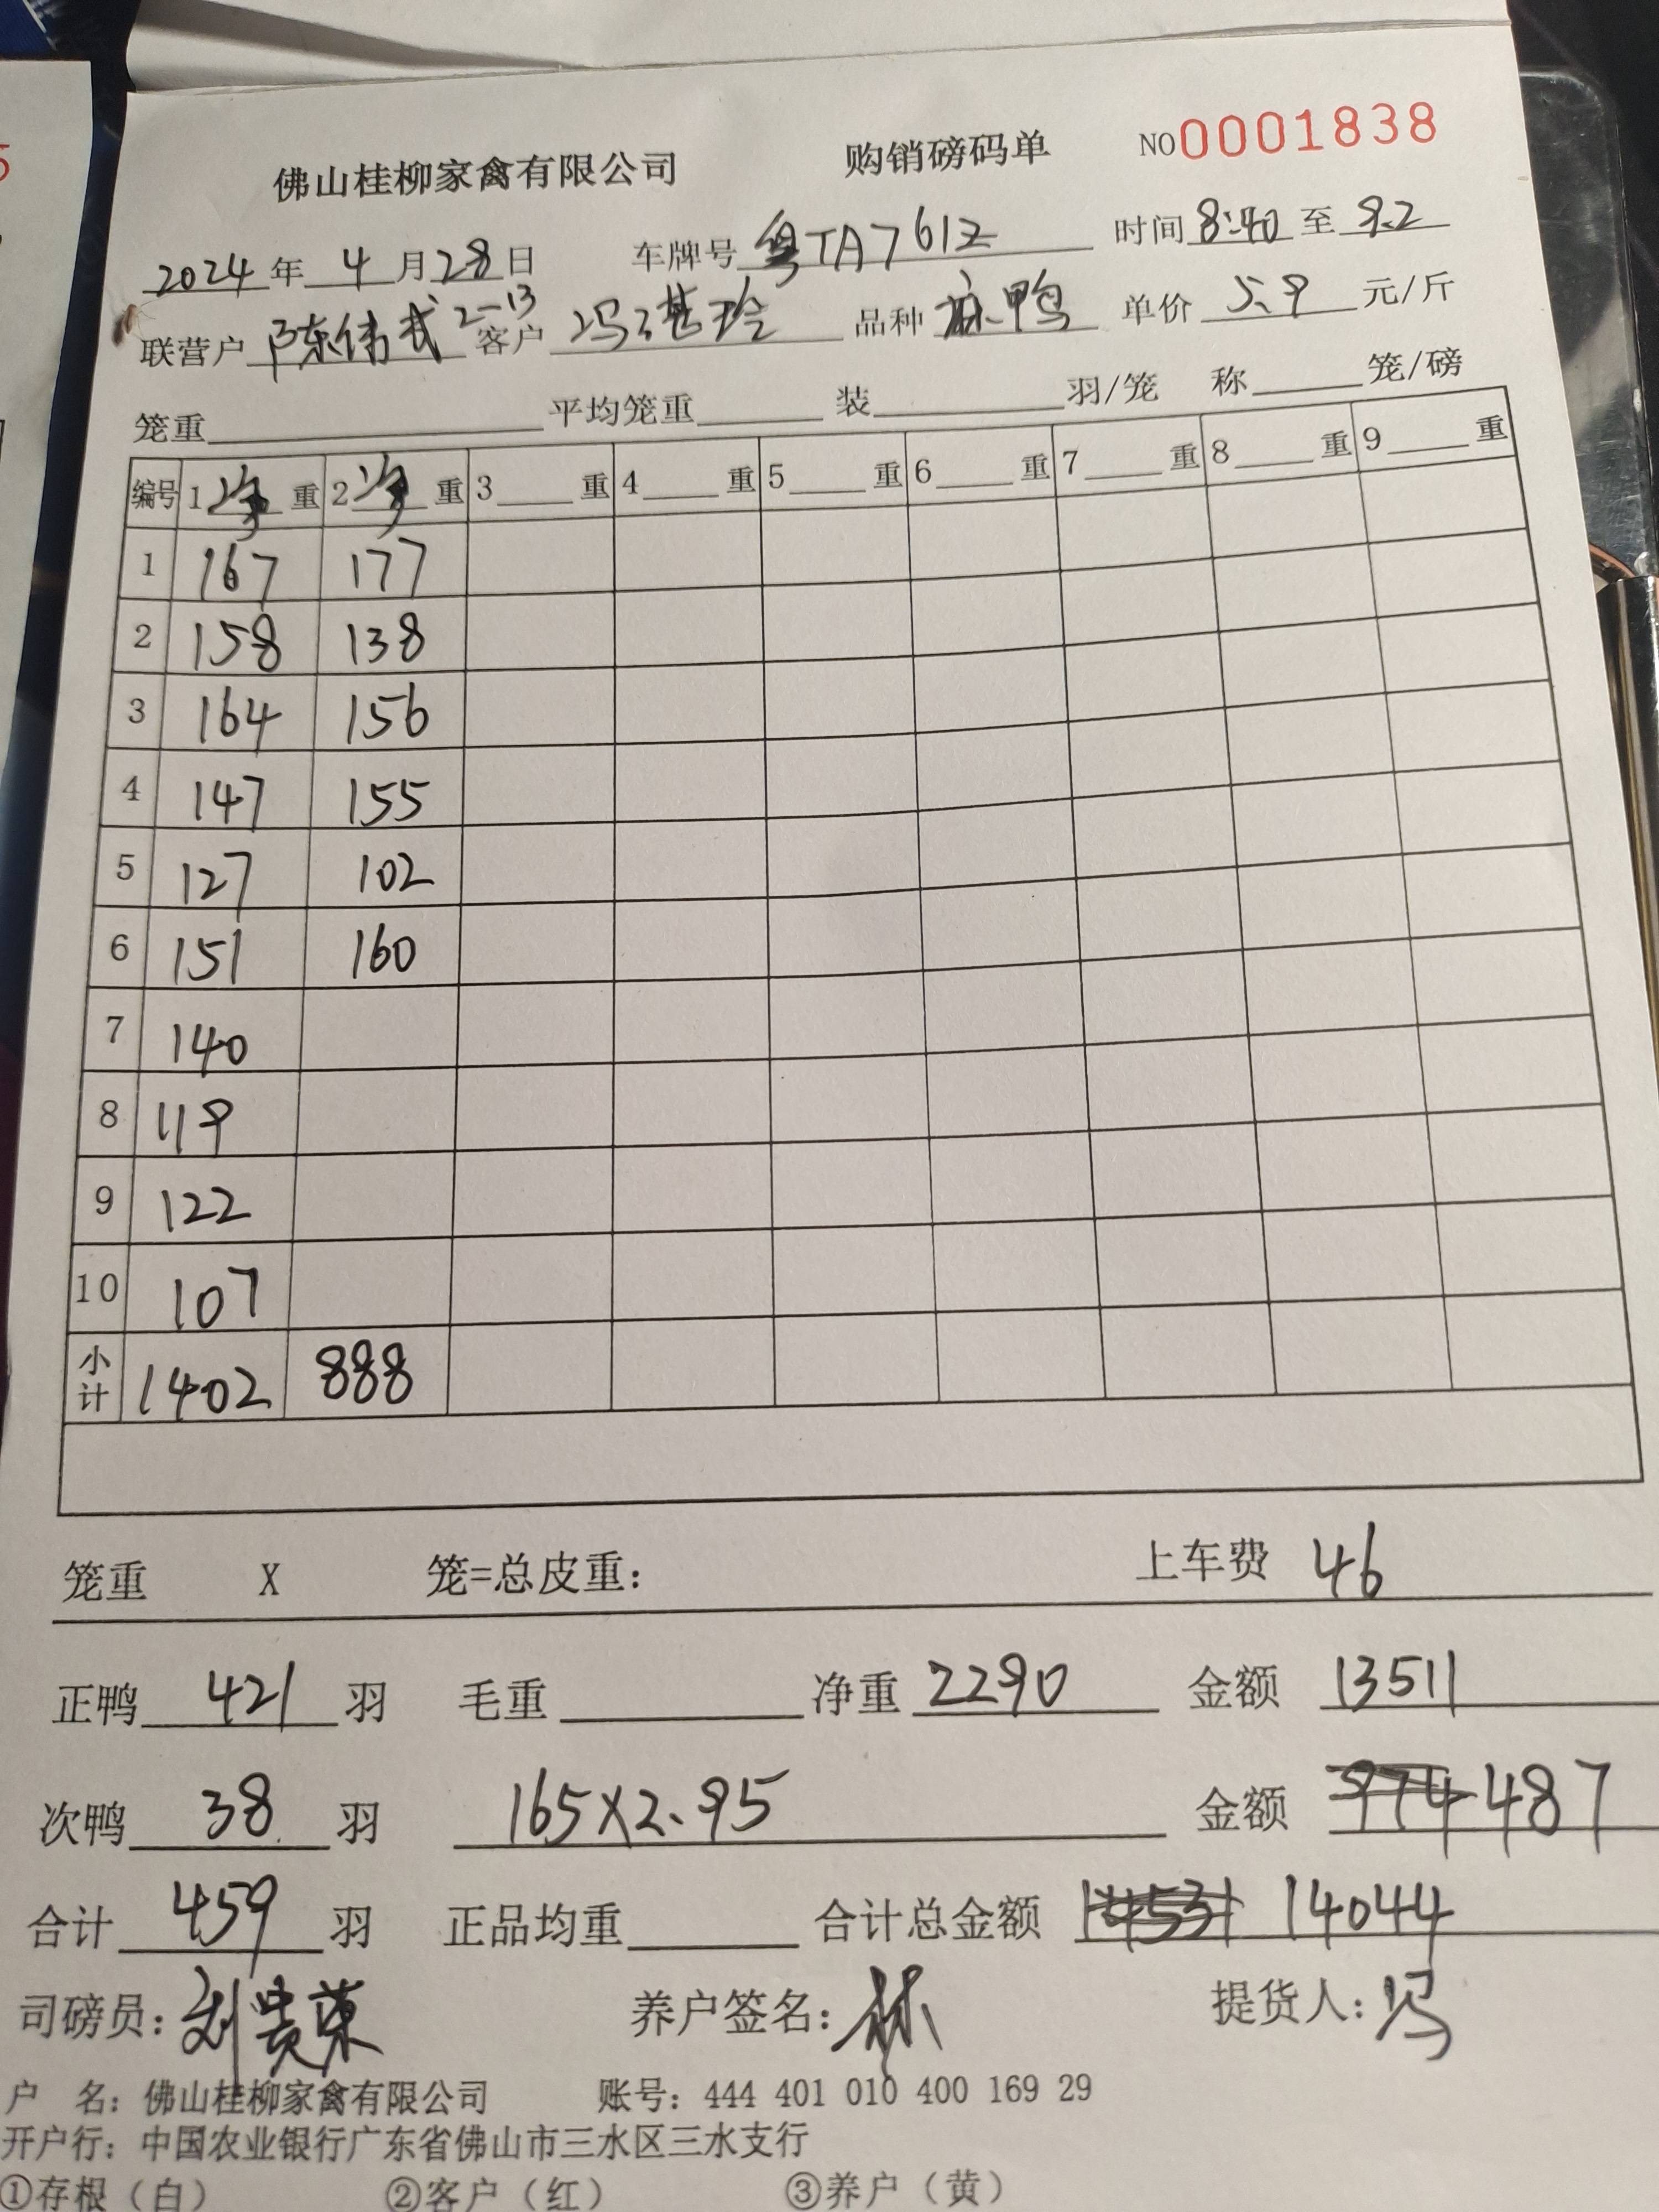 佛山桂柳家禽有限公司 购销磅码单 NO 0001838
2024年 4月28日 车牌号 粤TA7612 时间 8:40 至 9.2
联营户 陈伟武 2-13 客户 冯基玲 品种 麻鸭 单价 5.9 元/斤
笼重 平均笼重 装 羽/笼 称 笼/磅
编号 1净重 2净重 3 重 4 重 5 重 6 重 7 重 8 重 9 重
1 167 177
2 158 138
3 164 156
4 147 155
5 127 102
6 151 160
7 140
8 119
9 122
10 107
小计 1402 888
笼重 X 笼=总皮重: 上车费 46
正鸭 421 羽 毛重 净重 2290 金额 13511
次鸭 38 羽 165×2.95 金额 974 487
合计 459 羽 正品均重 合计总金额 14531 14044
司磅员: 刘贵荣 养户签名: 林 提货人: 冯
户 名: 佛山桂柳家禽有限公司 账号: 444 401 010 400 169 29
开户行: 中国农业银行广东省佛山市三水区三水支行
①存根（白） ②客户（红） ③养户（黄）